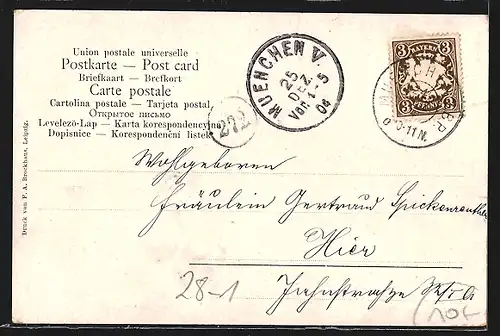 Union postale universelle
Postkarte — Post card
Briefkaart — Brefkort
Carte postale
Cartolina postale - Tarjeta postal
Открытое письмо
Levelező-Lap — Karta korespondencyjna
Dopisnice — Korespondenční lístek
Druck von F. A. Brockhaus, Leipzig.
MUENCHEN V.
25
DEZ
Vor. 4-5
04
272
3 BAYERN 3
3 PFENNIG 3
B.P.
-11 N.
Wohlgeboren
Fräulein Gertraud
Hier
Jahnstraße
28-1
10F